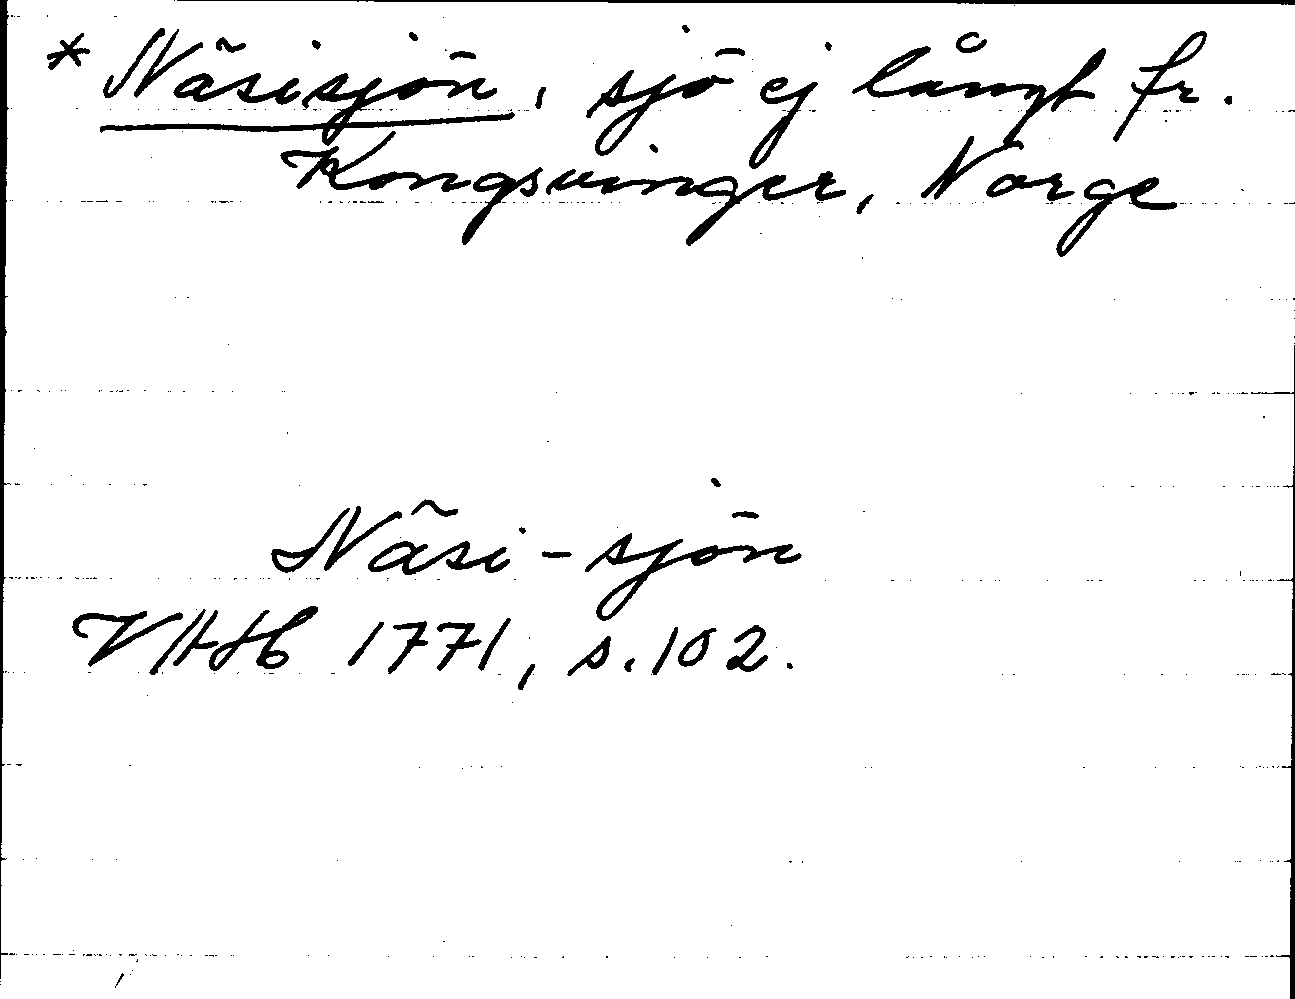 * Näsisjön, sjö ej långt fr.
Kongsvinger, Norge
Näsi-sjön
VHHb 1771, s. 102.